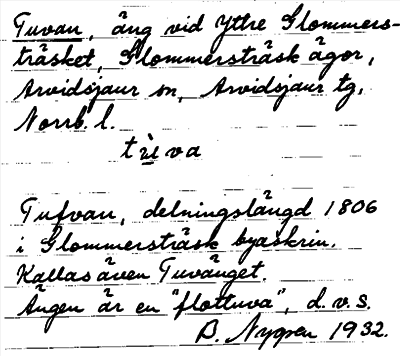 Tuvan, äng vid Yttre Glommers-
träsket, Glommersträsk ägor,
Arvidsjaur sn, Arvidsjaur tg,
Norrb. l.
tùva
Tufvan, delningslängd 1806
i Glommersträsk byaskrin.
Kallas även Tuvänget.
Ängen är en "flottuva", d.v.s.
B. Nygren 1932.